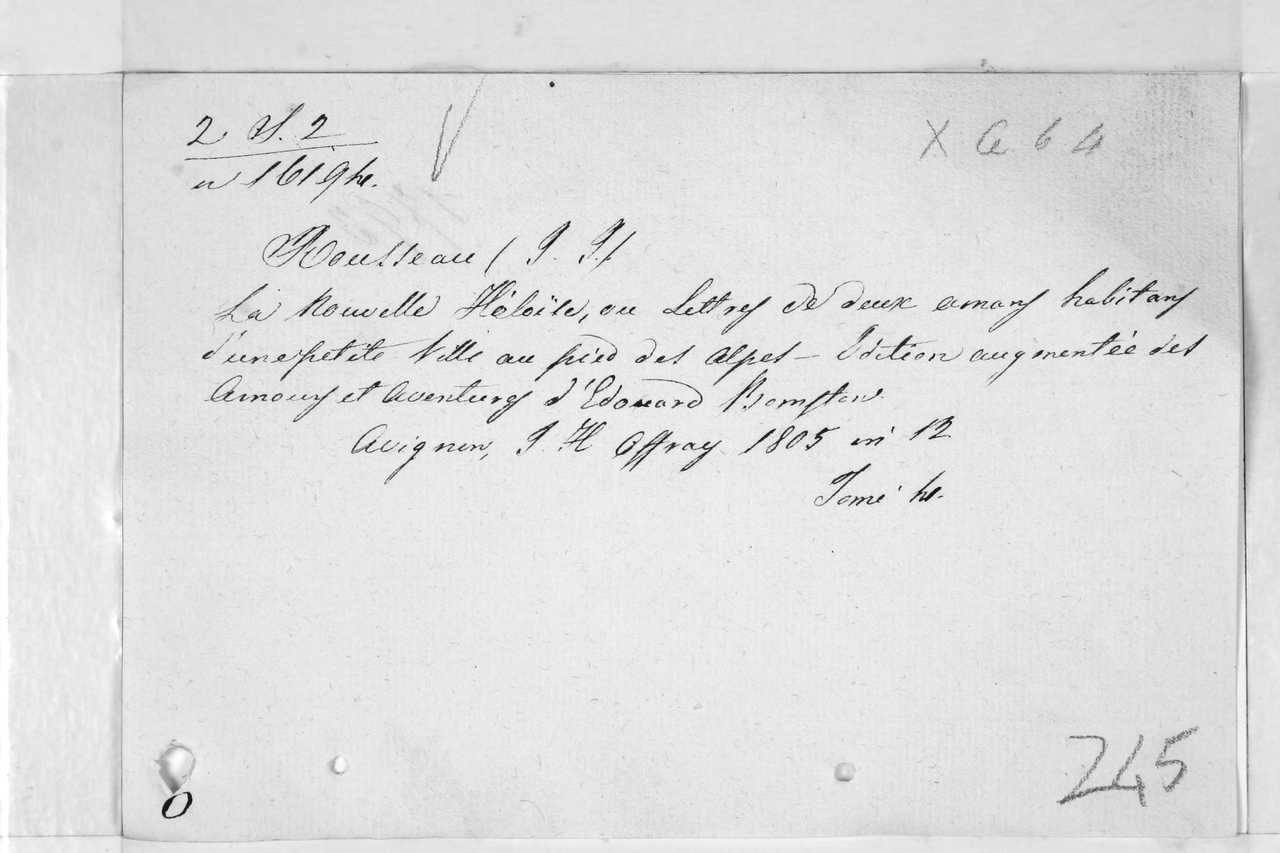 2 S. 2 X a 6 4
n 16194.
Rousseau (J. J.)
La Nouvelle Héloïse, ou Lettres de deux amans habitans
d'une petite Ville au pied des alpes - Edition augmentée des
Amours et Aventures d'Edouard Bomston.
Avignon, J. H Offray 1805 in 12
Tome 4.
245
O